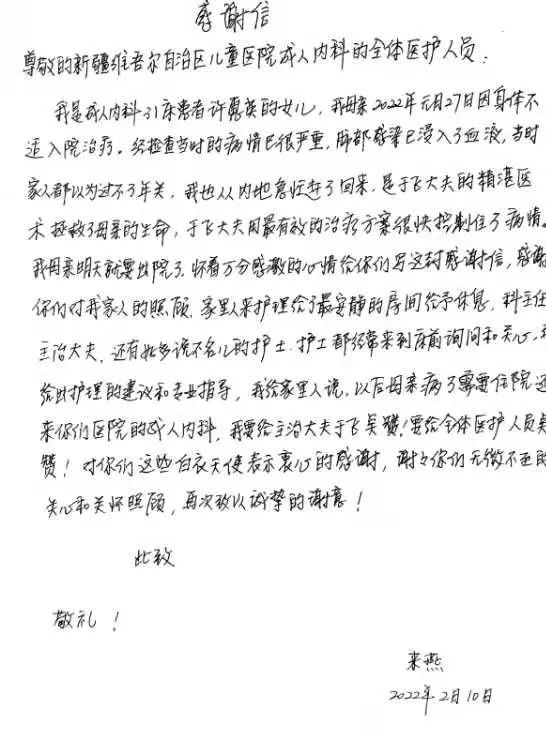 感谢信
尊敬的新疆维吾尔自治区儿童医院成人内科的全体医护人员:
我是成人内科31床患者许惠英的女儿,我母亲2022年元月27日因身体不
适入院治疗。经检查当时的病情已很严重,肺部感染已浸入了血液,当时
家人都以为过不了年关,我也从内地急忙赶了回来,是于飞大夫的精湛医
术拯救了母亲的生命,于飞大夫用最有效的治疗方案很快控制住了病情。
我母亲明天就要出院了,怀着万分感激的心情给你们写这封感谢信,感谢
你们对我家人的照顾,家里人来护理给了最安静的房间给予休息,科主任
主治大夫,还有好多说不名儿的护士,护士都经常来到床前询问和关心,
给出护理的建议和专业指导,我给家里人说,以后母亲病了需要住院还
来你们医院的成人内科,我要给主治大夫于飞点赞!要给全体医护人员点
赞!对你们这些白衣天使表示衷心的感谢,谢谢你们无微不至的
关心和关怀照顾,再次致以诚挚的谢意!
此致
敬礼!
来燕
2022年2月10日